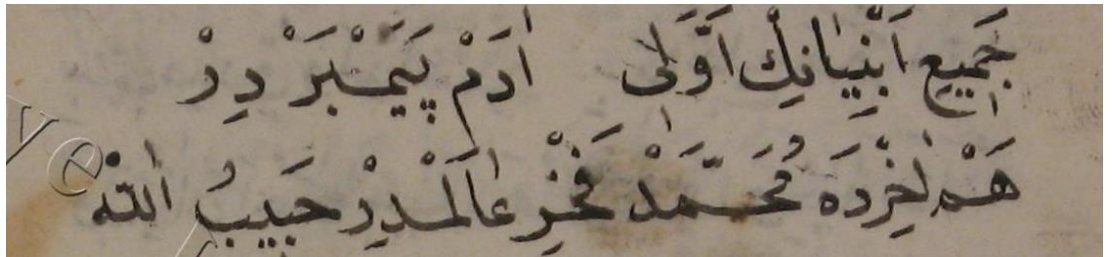 جَمِيعِ اَنْبِيَانِكْ اَوَّلِى اٰدَمْ پَيَمْبَرْ دِرْ
هَمْ اٰخِرْدَه مُحَمَّدْ فَخْرِ عَالَمْدِرْ حَبَيبُ اللّٰهْ